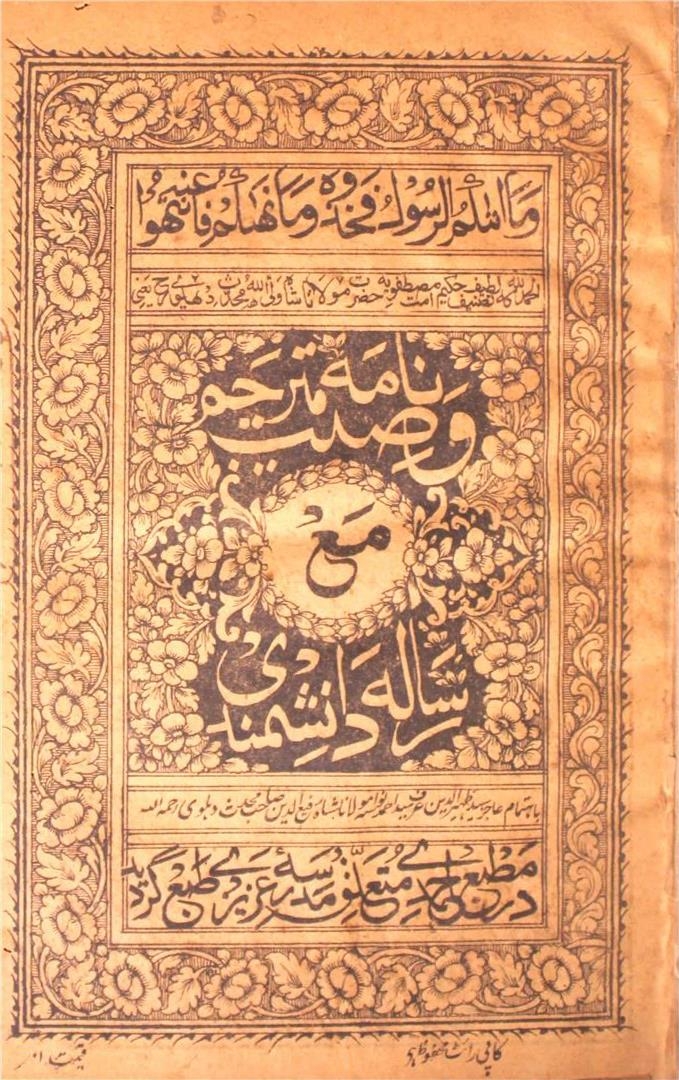 وَمَا اٰتٰىكُمُ الرَّسُوْلُ فَخُذُوْهُ وَمَا نَهٰىكُمْ عَنْهُ فَانْتَهُوْا
الحمد للہ کہ تصنیف لطیف حکیم امت مصطفویہ حضرت مولانا شاہ ولی اللہ محدث دہلوی رح یعنی
وصیت نامہ مترجم
مَعْ
رسالہ دانشمندی
باہتمام عاجز سید ظہیر الدین عرف سید احمد نواسہ مولانا شاہ رفیع الدین صاحب محدث دہلوی رحمہ اللہ
در مطبع احمدی متعلق مدرسہ عزیزی طبع گردید
کاپی رائٹ محفوظ ہے
قیمت